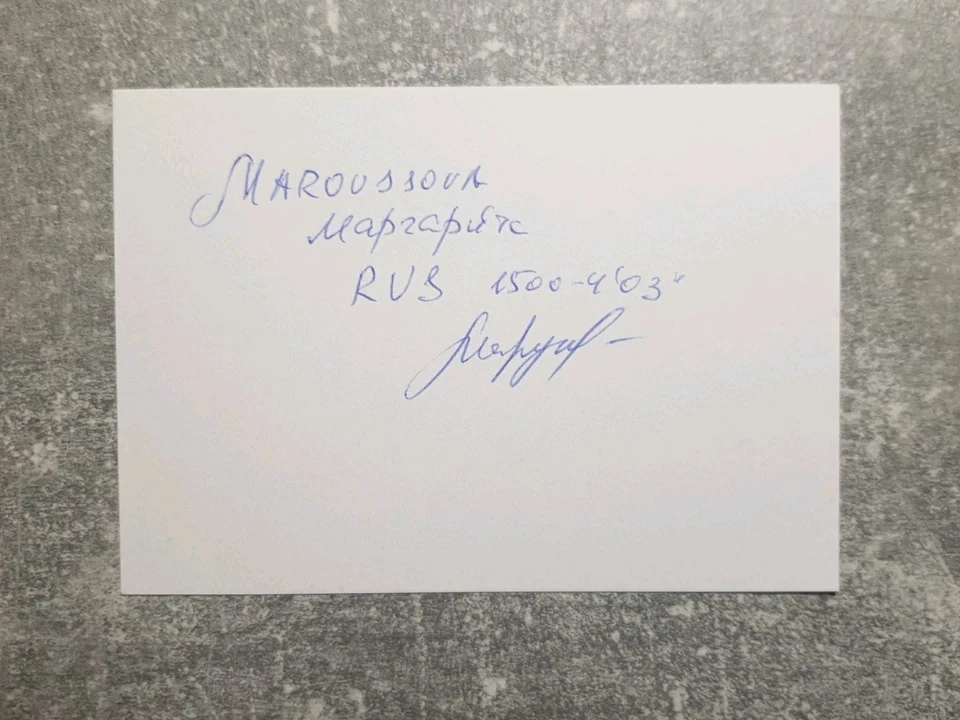 MAROUSSOVA
Маргарита
RUS 1500-4'03"